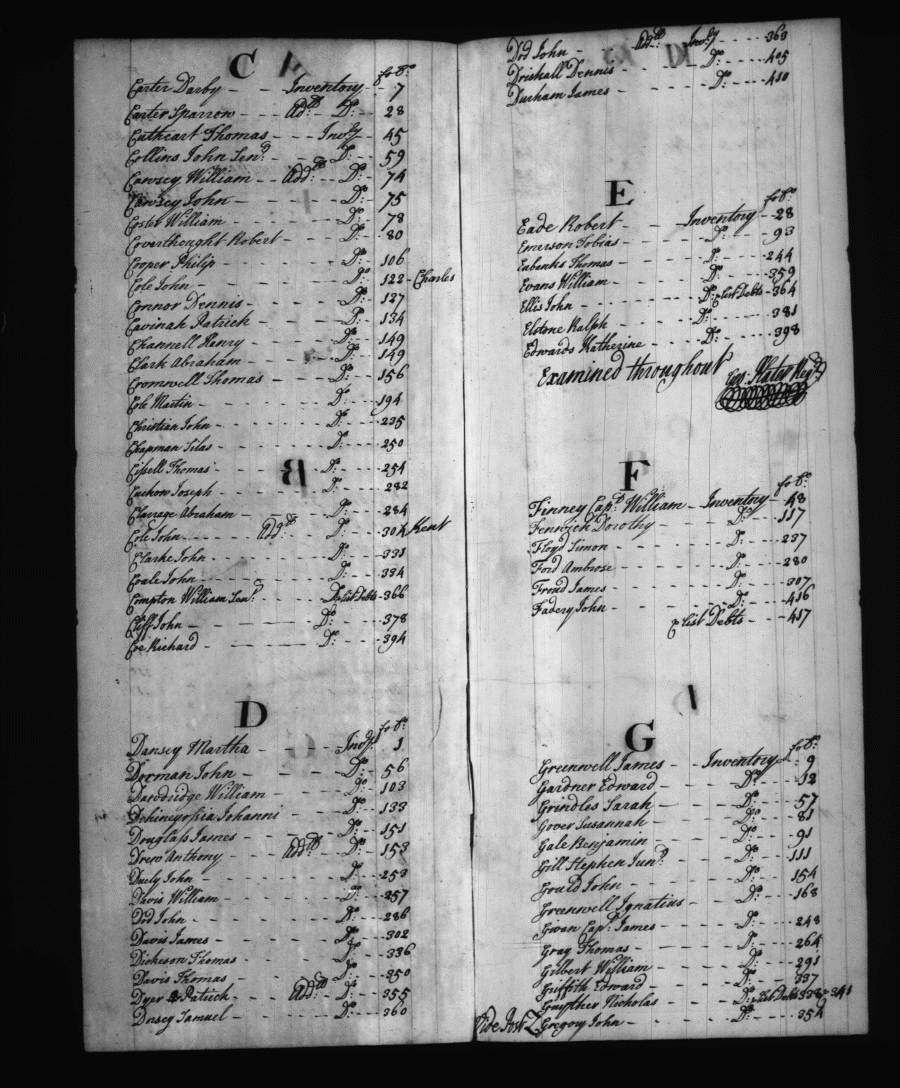 C
fo:
Carter Darby - - Inventory - 7
Carter Sparrow - - Add: D: - 28
Cuthcart Thomas - - Inv:y - 45
Collins John Sen:r - - D: - 59
Cawsey William - - Add: D: - 74
Cawsey John - - D: - 75
Coster William - - D: - 78
Coverthenght Robert - - D: - 80
Cooper Philip - - D: - 106
Cole John - - D: - 122 - Charles
Connor Dennis - - D: - 127
Cavinah Patrick - - D: - 134
Channell Henry - - D: - 149
Clark Abraham - - D: - 149
Cromwell Thomas - - D: - 156
Cole Martin - - D: - 194
Christian John - - D: - 235
Chapman Silas - - D: - 250
Cissell Thomas - - D: - 254
Joseph - - D: - 282
Clavage Abraham - - D: - 284
Cole John - - Add: D: - 304 Kent
Clarke John - - D: - 331
Coale John - - D: - 334
Compton William Sen:r - - D: & list Debts - 366
Cliff John - - D: - 378
Coe Richard - - D: - 394
D
fo:
Dansey Martha - - Inv:y 1
Dorman John - - D: - 56
William - - D: - 103
Johanni - - D: - 133
Douglass James - - D: - 151
Drew Anthony - - Add: D: - 153
Duely John - - D: - 253
Davis William - - D: - 257
Dod John - - D: - 286
Davis James - - D: - 302
Dickeson Thomas - - D: - 336
Davis Thomas - - D: - 350
Dyer Patrick - - Add: D: - 355
Dorsey Samuel - - D: - 360
Dod John - - Add: Inv:y - 363
Driskall Dennis - - D: - 405
Durham James - - D: - 410
E
fo:
Eade Robert - - Inventory - 28
Emerson Tobias - - D: - 93
Eubanks Thomas - - D: - 244
Evans William - - D: - 359
Ellis John - - D: & list Debts - 364
Elstone Ralph - - D: - 381
Edwards Katherine - - D: - 398
Examined throughout
Reg:r
F
fo:
Finney Cap:t William - Inventory - 48
Fenwick Dorothy - - D: - 117
Floyd Simon - - D: - 237
Ford Ambrose - - D: - 280
Frend James - - D: - 307
Fadery John - - D: - 416
& list Debts - - 417
G
fo:
Greenwell James - - Inventory - 9
Gardner Edward - - D: - 12
Grindles Sarah - - D: - 57
Gover Susannah - - D: - 81
Gale Benjamin - - D: - 91
Gill Stephen Jun:r - - D: - 111
Gould John - - D: - 154
Greenwell Ignatius - - D: - 168
Gwan Cap:t James - - D: - 248
Gray Thomas - - D: - 264
Gilbert William - - D: - 291
Griffith Edward - - D: - 337
Gayther Nicholas - - D: & list Debts 338 & 341
Vide Post Gregory John - - D: - 354